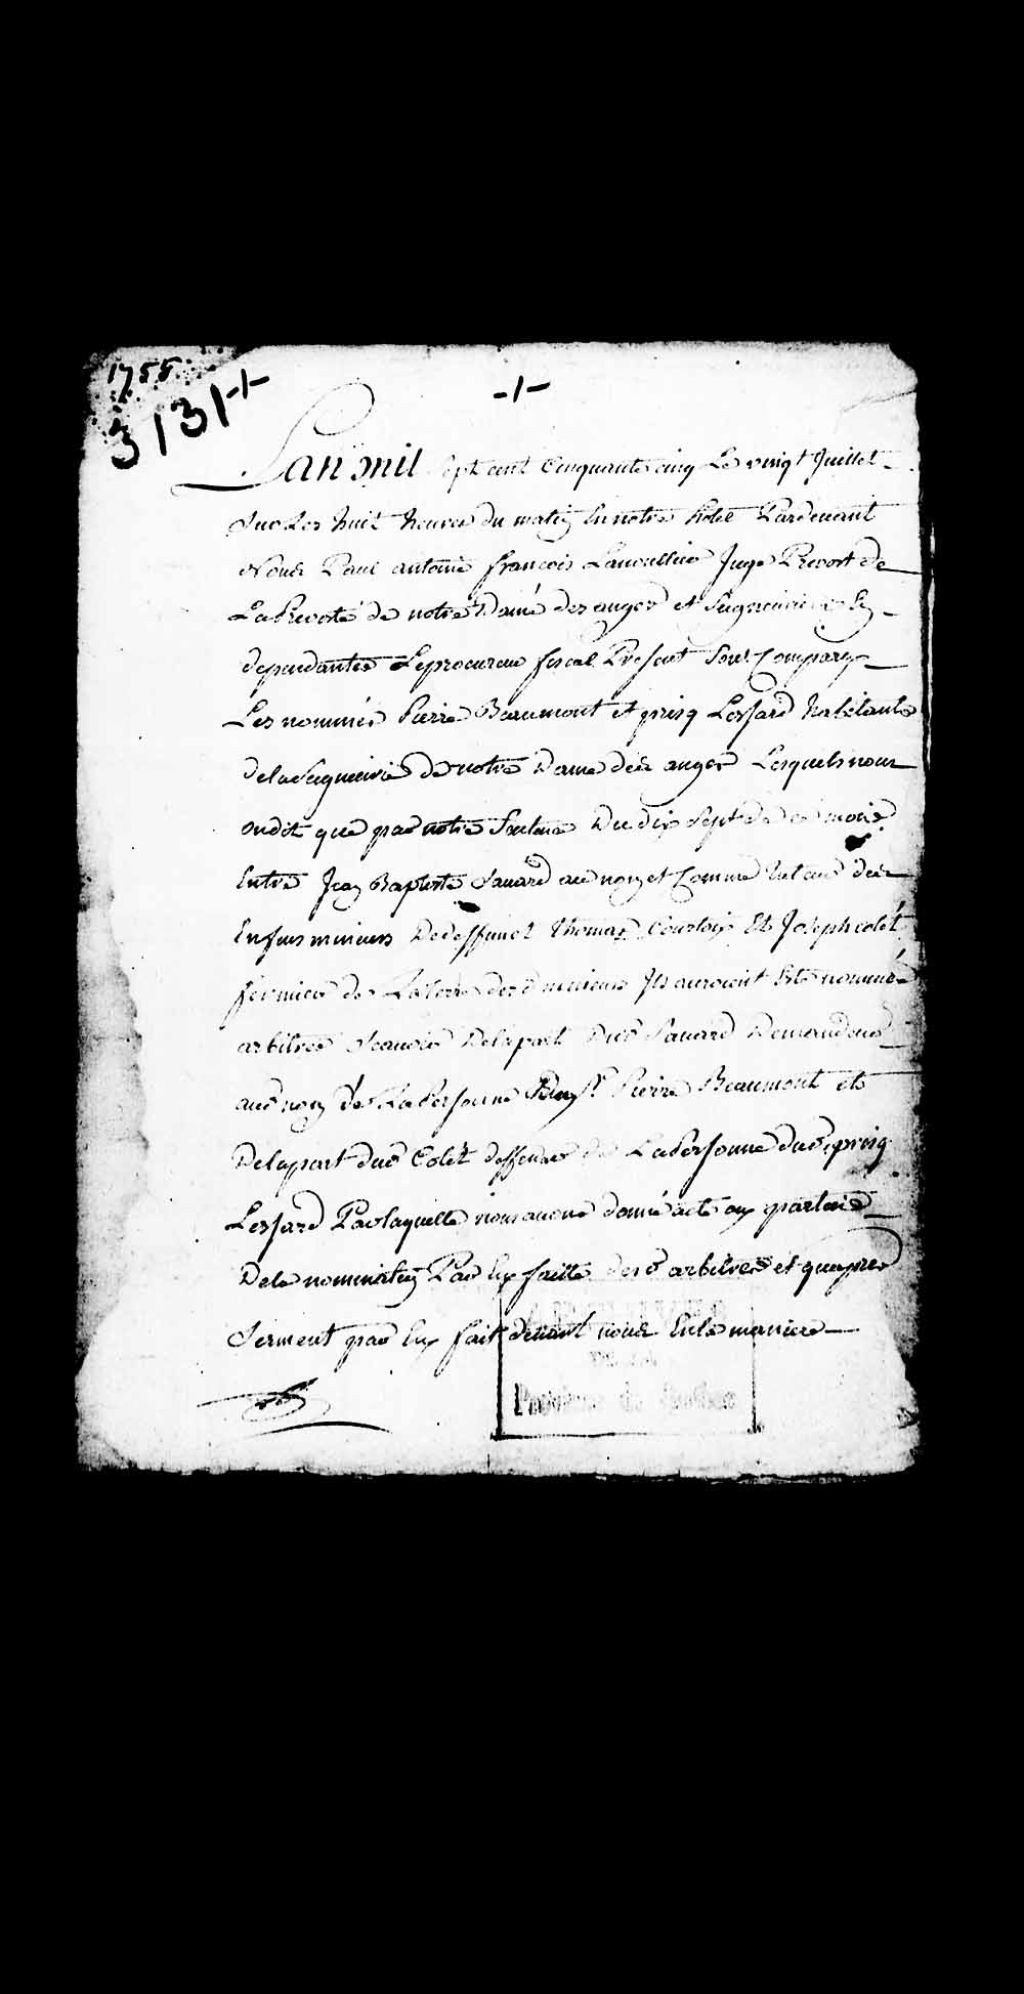 1755
3131
-1-
Lan mil sept cent Cinquante cinq Le vingt Juillet
Sur Les huit heures du matin En notre hotel Pardevant
Nous Paul antoine françois Lanoullier Juge Prevost de
La Prevosté de notre Dame des anges et Seigneuries En
dependantes Le procureur fiscal Present Sont Comparus
Les nommés Pierre Beaumont et prisq Lessard habitants
de la Seigneurie de notre Dame des anges Lesquels nous
ondit que par notre Sentence Du dix Sept de ce mois
Entre Jean Baptiste Savard au nom et Comme tuteur des
Enfans mineurs De deffunct Thomas Courtois Et Joseph colet
fermier de La terre desd mineurs Ils auroient Eté nommé
arbitres Scavoir De la part dud Savard Demandeur
aud nom de La Personne Du Sr Pierre Beaumont et
De la part dud Colet deffendeur de La Personne dud prisq
Lessard Par laquelle nous avons donné acte aux parties
De la nomination Par Eux faitte desd arbitres et quapres
Serment par Eux fait devant nous En la maniere
Province de Québec